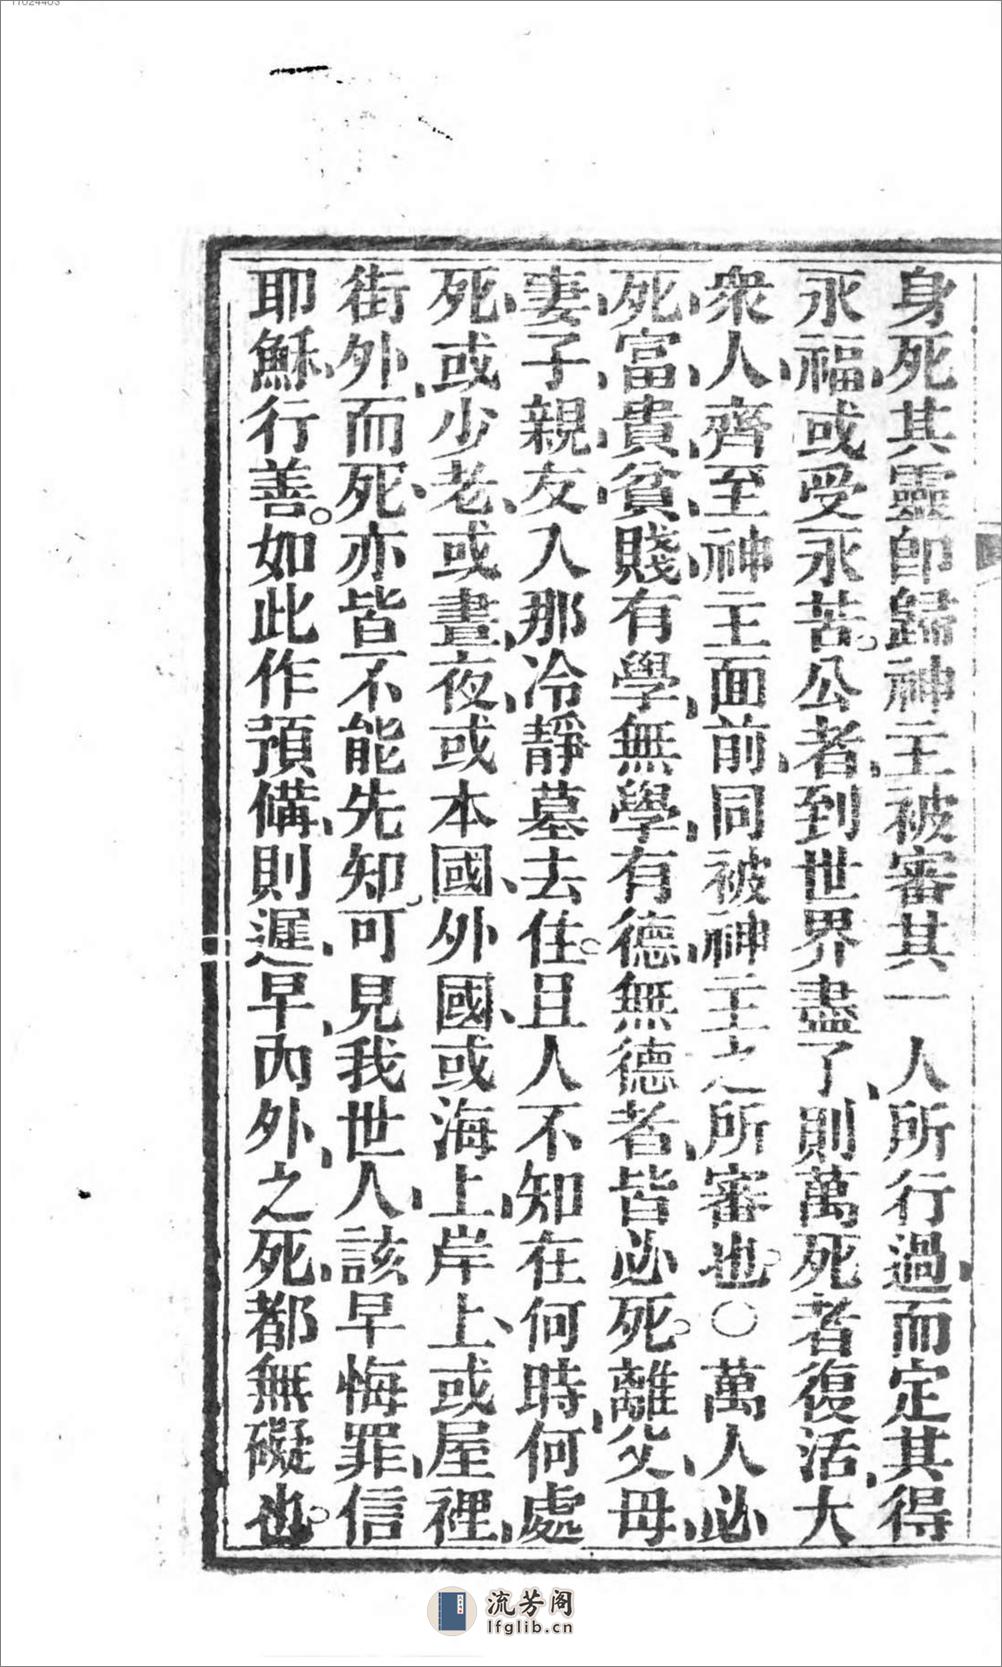 身死其靈卽歸神主被審其一人所行過而定其得
永福或受永苦。公者到世界盡了、則萬死者復活、大
衆人齊至神主面前同被神主之所審也。○萬人必
死、富貴貧賤、有學、無學、有德、無德者、皆必死。離父母、
妻子、親友、入那冷靜墓去住。且人不知在何時、何處
死、或少老、或晝夜、或本國、外國、或海上、岸上、或屋裡、
街外、而死、亦皆不能先知、可見我世人、該早悔罪、信
耶穌、行善。如此作預備、則遲、早、內外、之死、都無礙也。
流芳阁
lfglib.cn